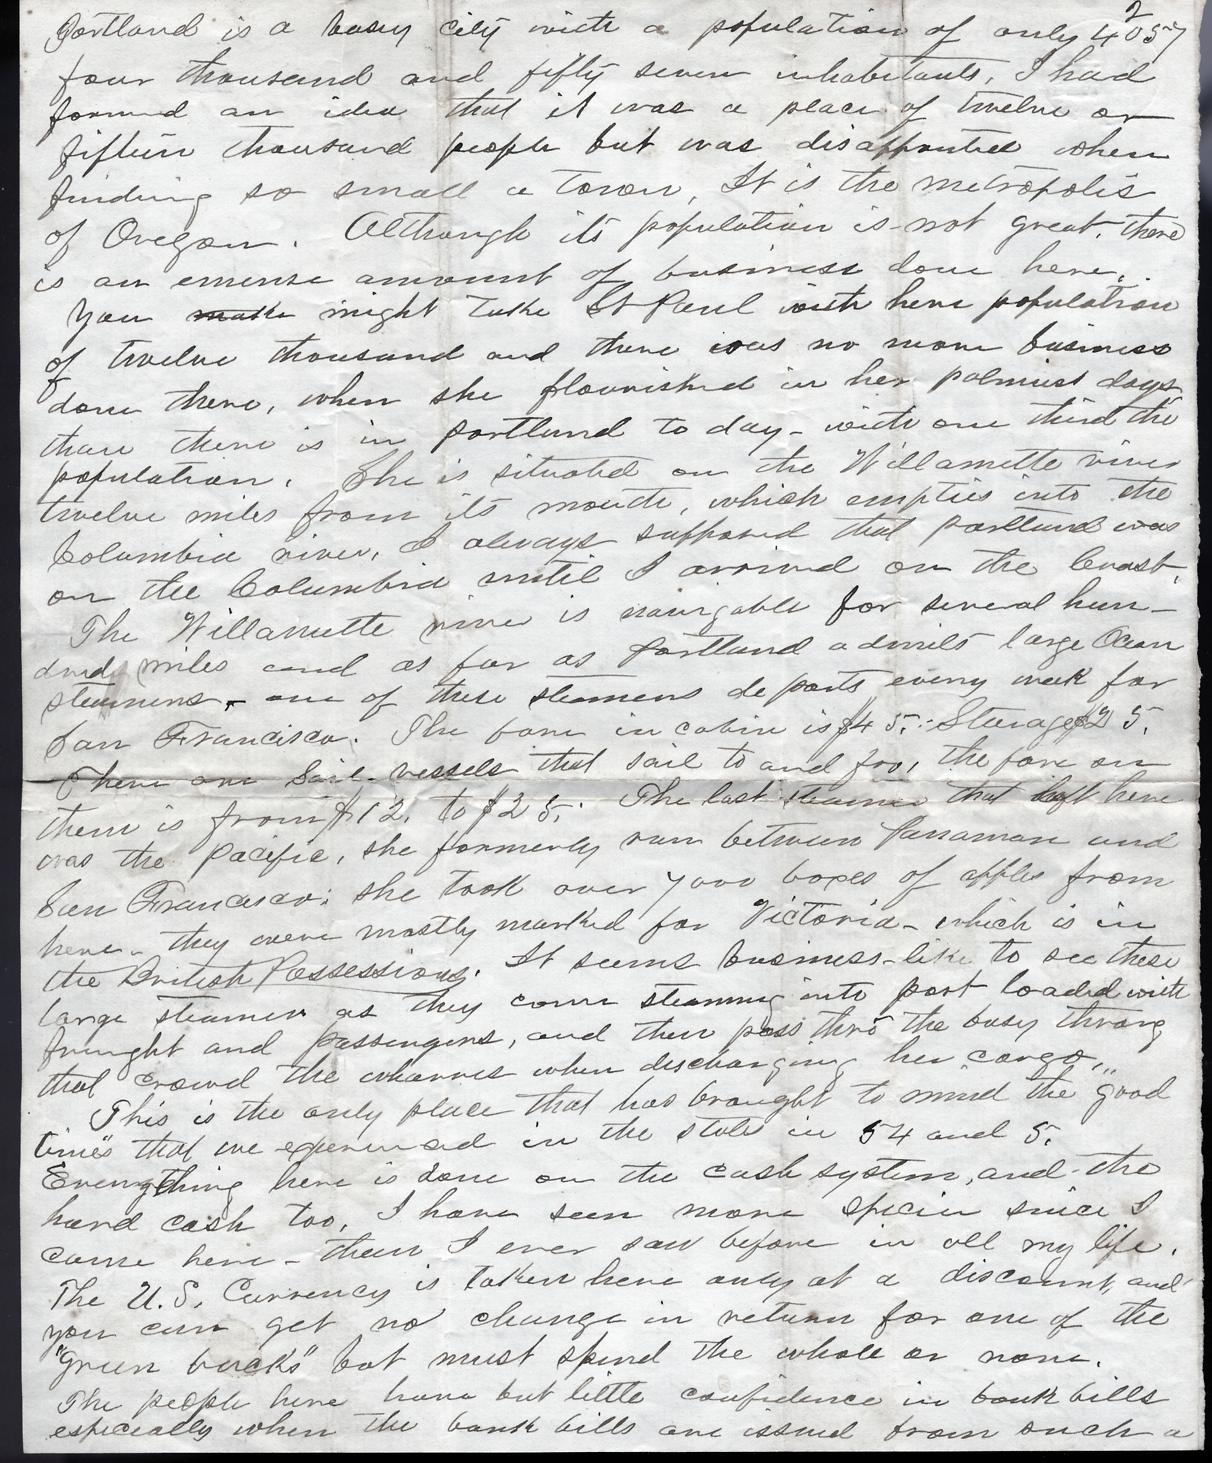 2
Portland is a busy city with a population of only 4057
four thousand and fifty seven inhabitants, I had
formed an idea that it was a place of twelve or
fifteen thousand people but was disappointed when
finding so small a town, It is the metropolis
of Oregon. Although its population is not great, there
is an emense amount of business done here.
You make might take St Paul with here population
of twelve thousand and there was no more business
done there, when she flourished in her palmiest days
than there is in Portland to day - with one third the
population. She is situated on the Willamette river
twelve miles from its mouth, which empties into the
Columbia river, I always supposed that Portland was
on the Columbia until I arrived on the Coast.
The Willamette river is navigable for several hun-
dred miles and as far as Portland admits large Ocean
steamers, - one of these steamers departs every week for
San Francisco. The fare in cabin is $45. Sterage $25.
There are Sail-vessels that sail to and fro, the fare on
them is from $12, to $25. The last steamer that left here
was the Pacific, she formerly run between Panaman and
San Francisco; she took over 7000 boxes of apples from
here - they were mostly marked for Victoria - which is in
the British Possessions. It seems business-like to see these
large steamers as they come steaming into port loaded with
freight and passengers, and then pass thro the busy throng
that crowd the wharves when discharging her cargo.
This is the only place that has brought to mind the "good
times" that we experienced in the states in 54 and 5.
Everything here is done on the cash system, and the
hard cash too, I have seen more specie since I
came here - than I ever saw before in all my life.
The U.S. Currency is taken here only at a discount, and
you can get no change in return for one of the
"green backs" but must spend the whole or none.
The people here have but little confidence in bank bills
especially when the bank bills are issued from such a